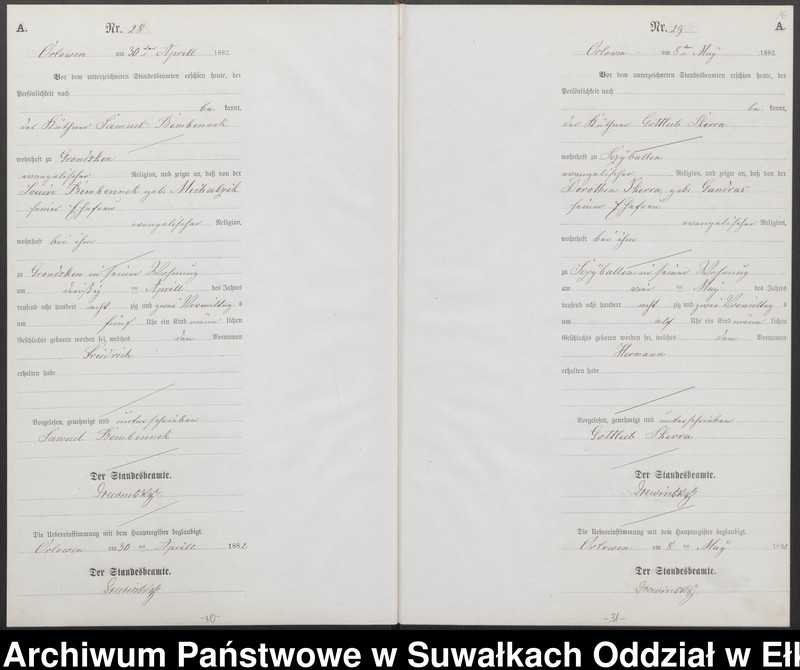 A.
Nr. 28
Orlowen am 30 ten Aprill 1882.
Vor dem unterzeichneten Standesbeamten erschien heute, der
Persönlichkeit nach
be kannt,
der Käthner Samuel Bembenneck
wohnhaft zu Grondzken
evangelischer Religion, und zeigte an, daß von der
Louise Bembenneck geb. Michalzik
seiner Ehefrau
evangelischer Religion,
wohnhaft bei ihm
zu Grondzken in seiner Wohnung
am dreißig ten Aprill des Jahres
tausend acht hundert acht zig und zwei Vormittag s
um fünf Uhr ein Kind männ lichen
Geschlechts geboren worden sei, welches den Vornamen
Friedrich
erhalten habe
Vorgelesen, genehmigt und unterschrieben
Samuel Bembenneck
Der Standesbeamte.
Die Uebereinstimmung mit dem Hauptregister beglaubigt.
Orlowen am 30 ten Aprill 1882
Der Standesbeamte.
-30-
16
Nr. 29
A.
Orlowen am 8 ten May 1882.
Vor dem unterzeichneten Standesbeamten erschien heute, der
Persönlichkeit nach
be kannt,
der Käthner Gottlieb Skorra
wohnhaft zu
evangelischer Religion, und zeigte an, daß von der
Dorothea Skorra, geb. Gundras
seiner Ehefrau
evangelischer Religion,
wohnhaft bei ihm
zu in seiner Wohnung
am May des Jahres
tausend acht hundert acht zig und zwei Vormittag s
um elf Uhr ein Kind männ lichen
Geschlechts geboren worden sei, welches den Vornamen
Hermann
erhalten habe
Vorgelesen, genehmigt und unterschrieben
Gottlieb Skorra
Der Standesbeamte.
Die Uebereinstimmung mit dem Hauptregister beglaubigt.
Orlowen am 8 ten May 1882
Der Standesbeamte.
-31-
Archiwum Państwowe w Suwałkach Oddział w Eł